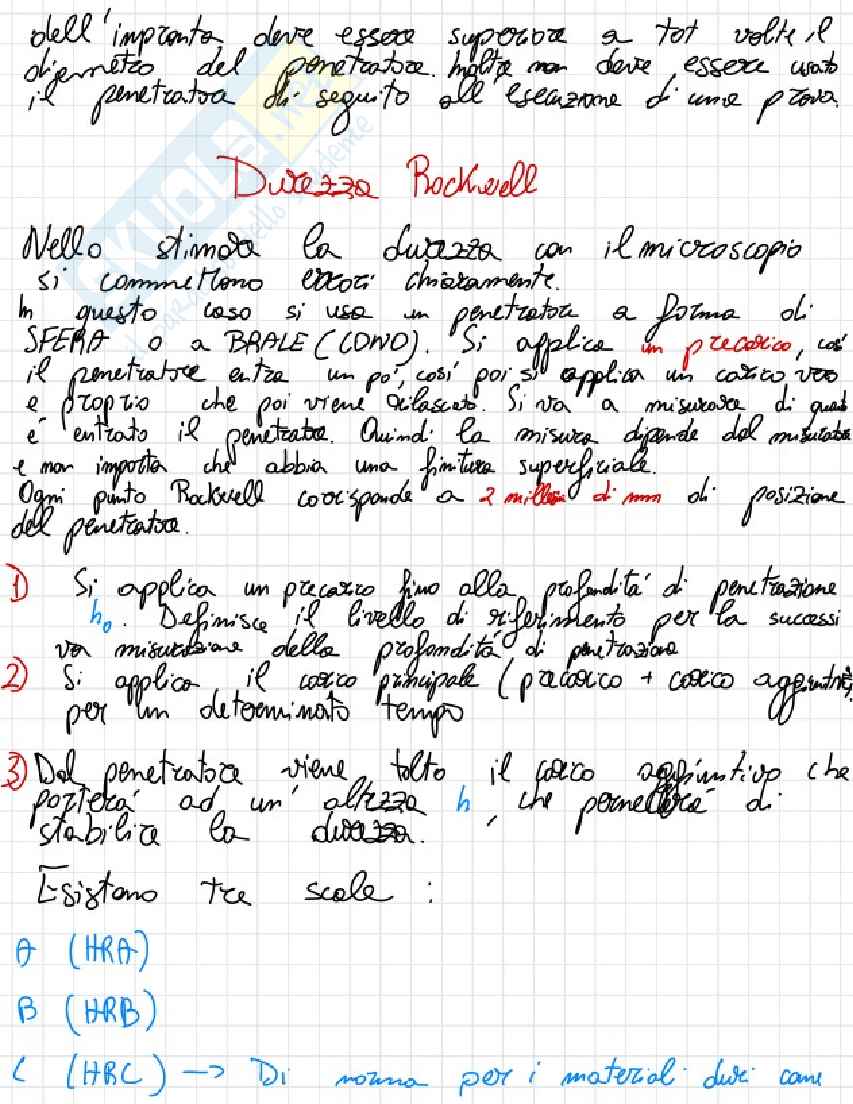 dell'impronta deve essere superiore a tot volte il
diametro del penetratore. Inoltre non deve essere usato
il penetratore di seguito all'esecuzione di una prova.
Durezza Rockwell
Nello stimare la durezza con il microscopio
si commettono errori chiaramente.
In questo caso si usa un penetratore a forma di
SFERA o a BRALE (CONO). Si applica un precarico, così
il penetratore entra un po', così poi si applica un carico vero
e proprio che poi viene rilasciato. Si va a misurare di quanto
è entrato il penetratore. Quindi la misura dipende dal misuratore
e non importa che abbia una finitura superficiale.
Ogni punto Rockwell corrisponde a 2 millesi di mm di posizione
del penetratore.
1) Si applica un precarico fino alla profondità di penetrazione
h0. Definisce il livello di riferimento per la successi
va misurazione della profondità di penetrazione
2) Si applica il carico principale (precarico + carico aggiuntivo)
per un determinato tempo
3) Dal penetratore viene tolto il carico aggiuntivo che
porterà ad un' altezza h, che permetterà di
stabilire la durezza.
Esistono tre scale :
A (HRA)
B (HRB)
C (HRC) -> Di norma per i materiali duri come